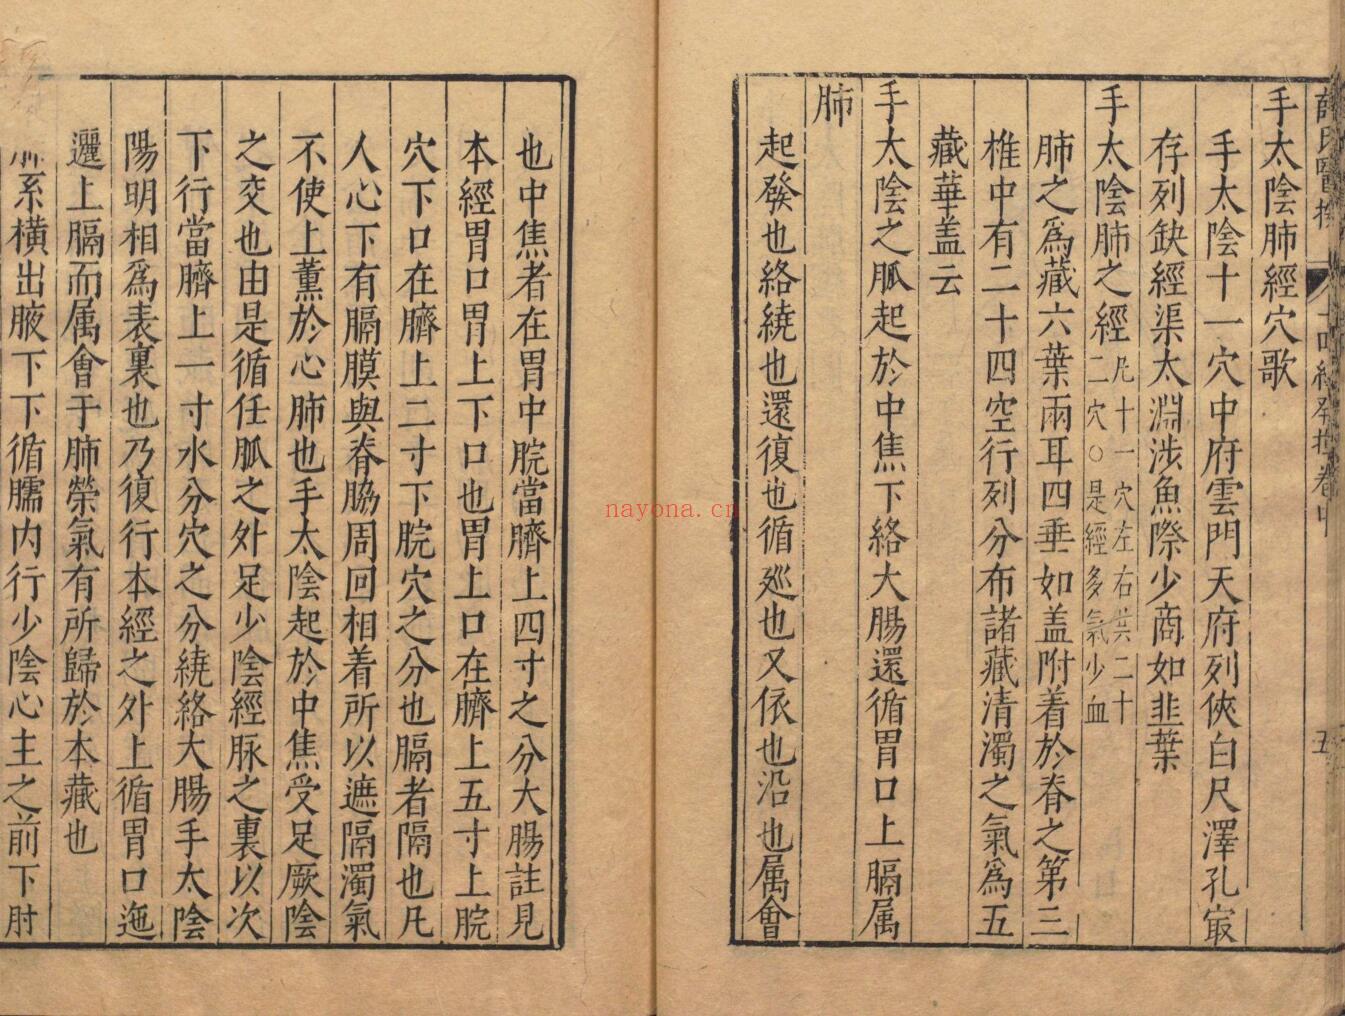 手太陰肺經穴歌
手太陰十一穴中府雲門天府列俠白尺澤孔㝡
存列缺經渠太淵涉魚際少商如韭葉
手太陰肺之經凡十一穴左右共二十二穴○是經多氣少血
肺之爲藏六葉兩耳四垂如盖附着於脊之第三
椎中有二十四空行列分布諸藏清濁之氣爲五
藏華盖云
手太陰之脈起於中焦下絡大腸還循胃口上膈属
肺
起發也絡繞也還復也循廵也又依也沿也属會
也中焦者在胃中脘當臍上四寸之分大腸註見
本經胃口胃上下口也胃上口在臍上五寸上脘
穴下口在臍上二寸下脘穴之分也膈者隔也凡
人心下有膈膜與脊脇周回相着所以遮隔濁氣
不使上薰於心肺也手太陰起於中焦受足厥陰
之交也由是循任脈之外足少陰經脉之裏以次
下行當臍上一寸水分穴之分繞絡大腸手太陰
陽明相爲表裏也乃復行本經之外上循胃口迤
邐上膈而属會于肺榮氣有所歸於本藏也
系橫出腋下下循臑內行少陰心主之前下肘
nayona.cn